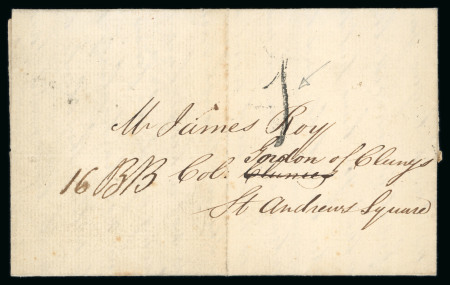 1
Mr James Roy
Gordon of Clunys
16 BB Col. Clunies
St Andrews Square